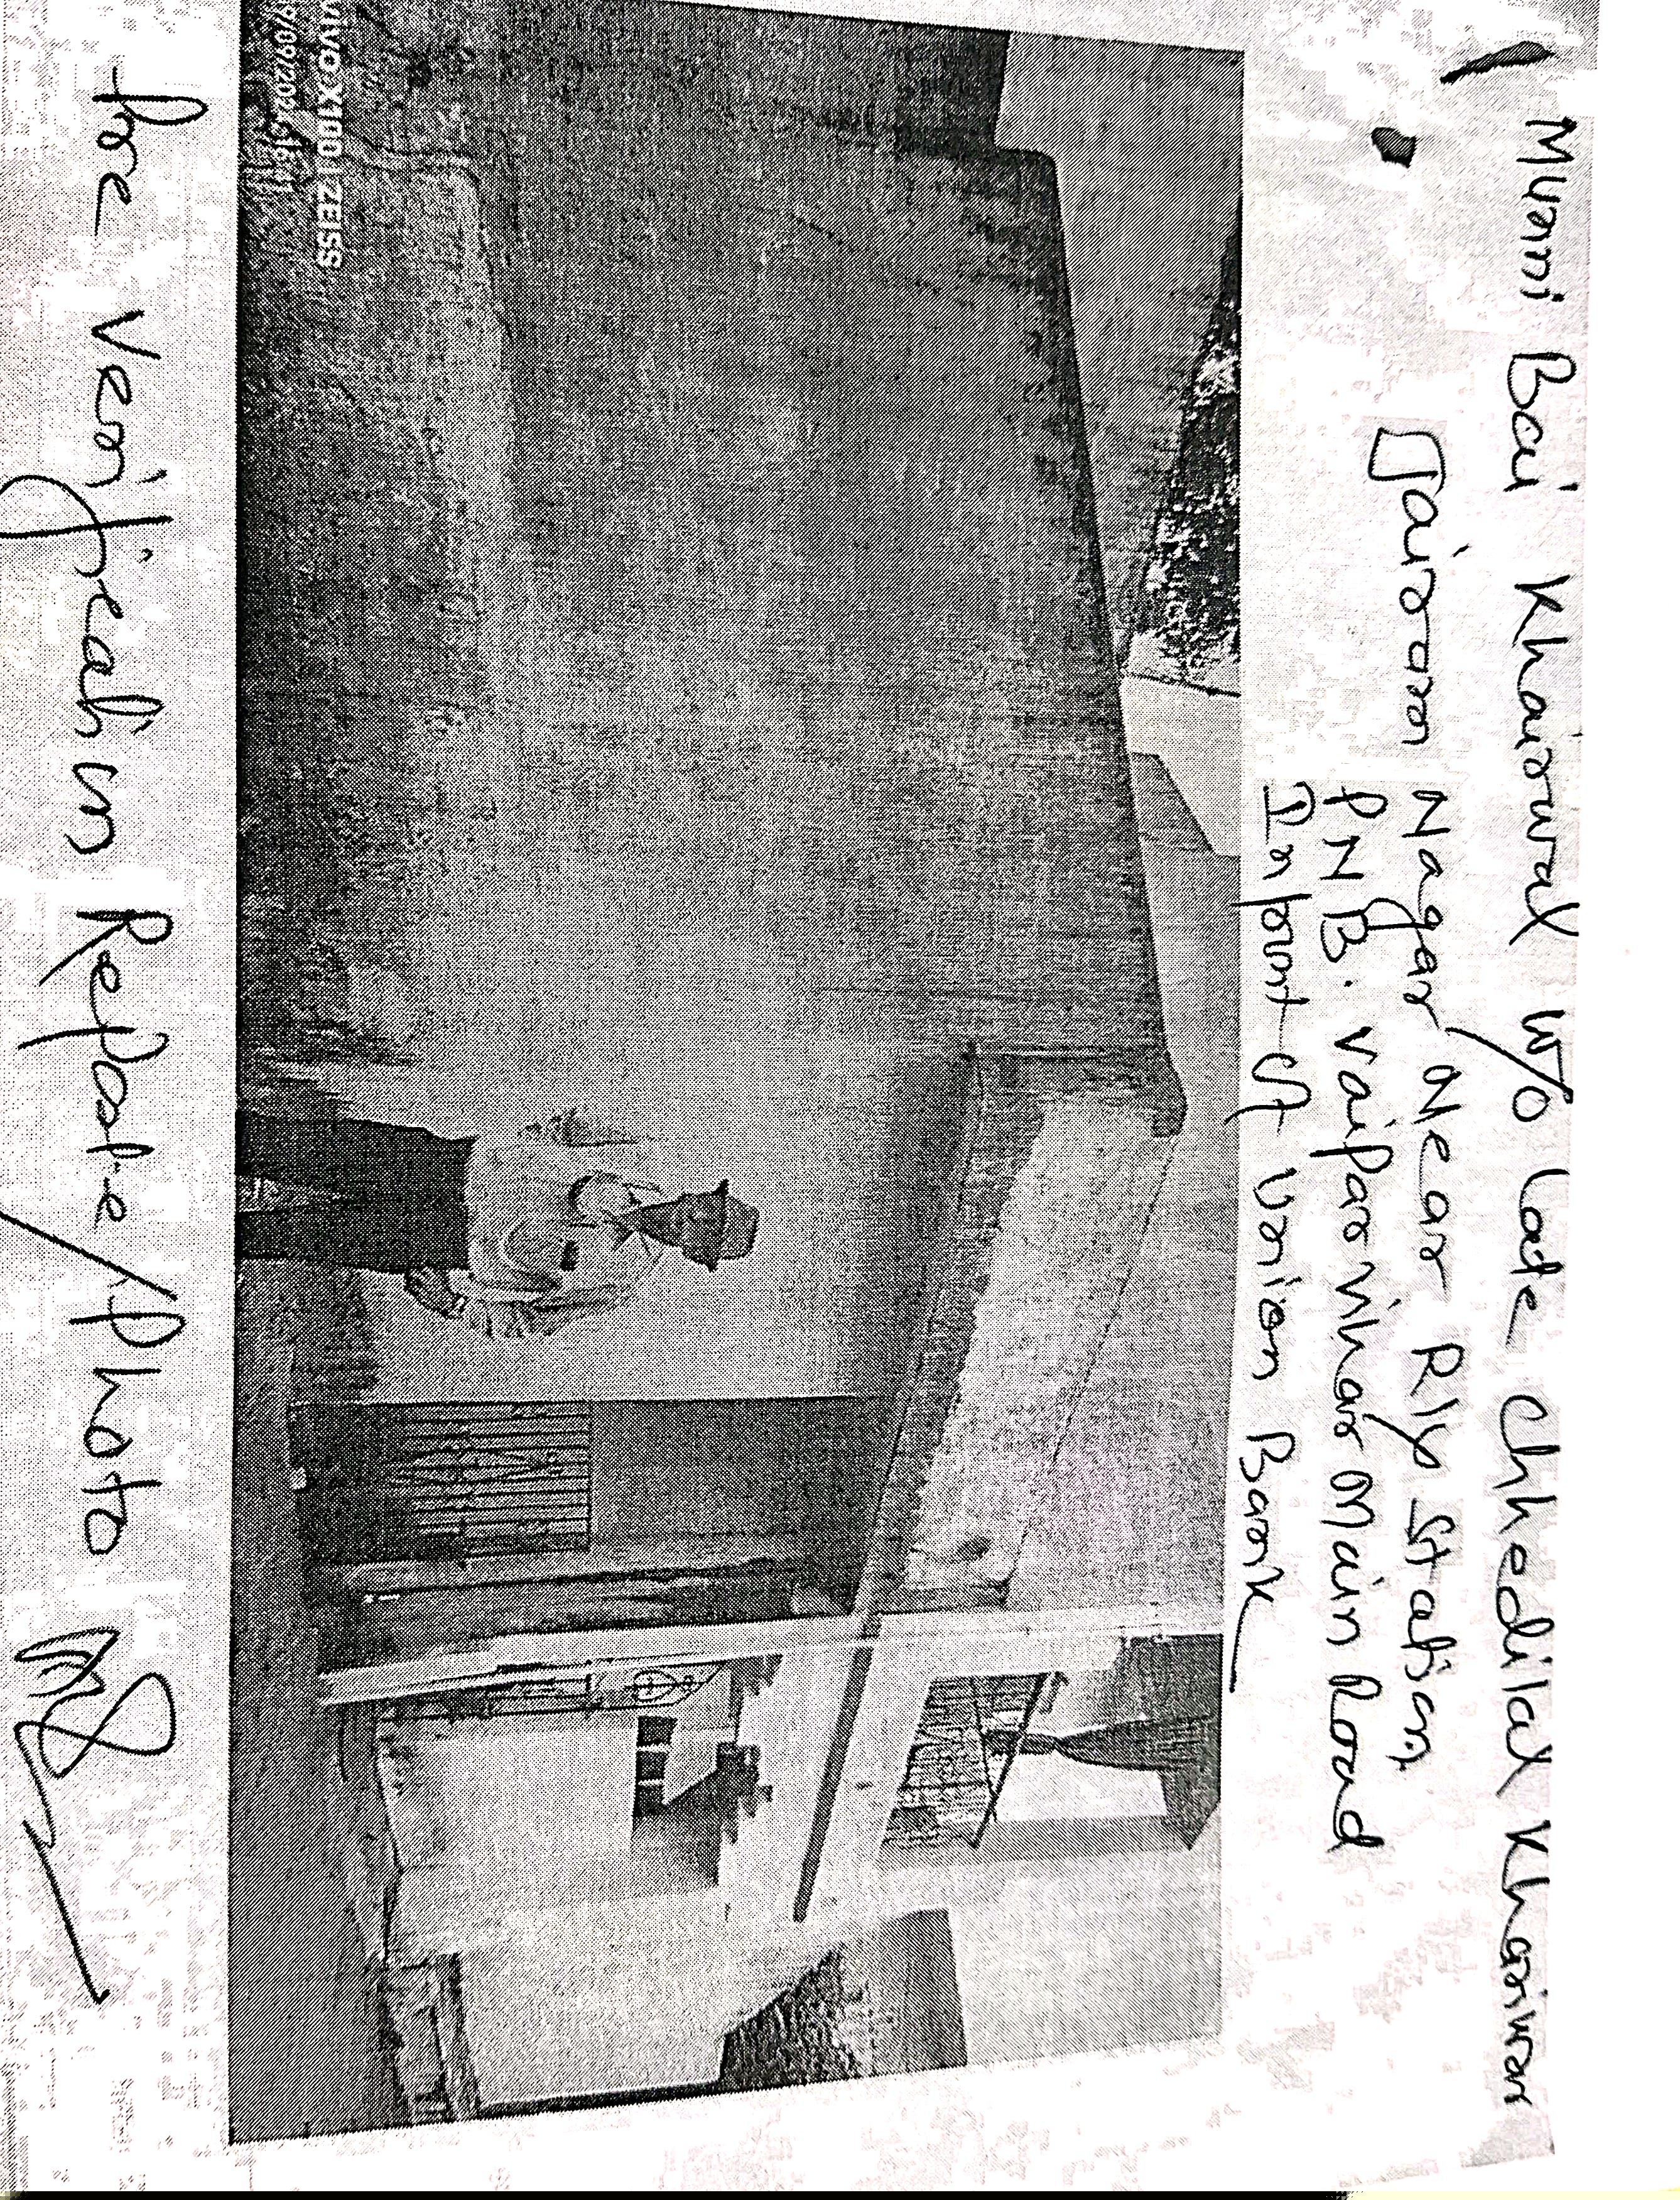 Munni Bai Khairwal W/o Late Chhedilal Khairwar
Jairam Nagar Near Rly Station
PNB. vaipar vihar Main Road
Infront of Union Bank
vivo X100 | ZEISS
Pre Verification Report/Photo